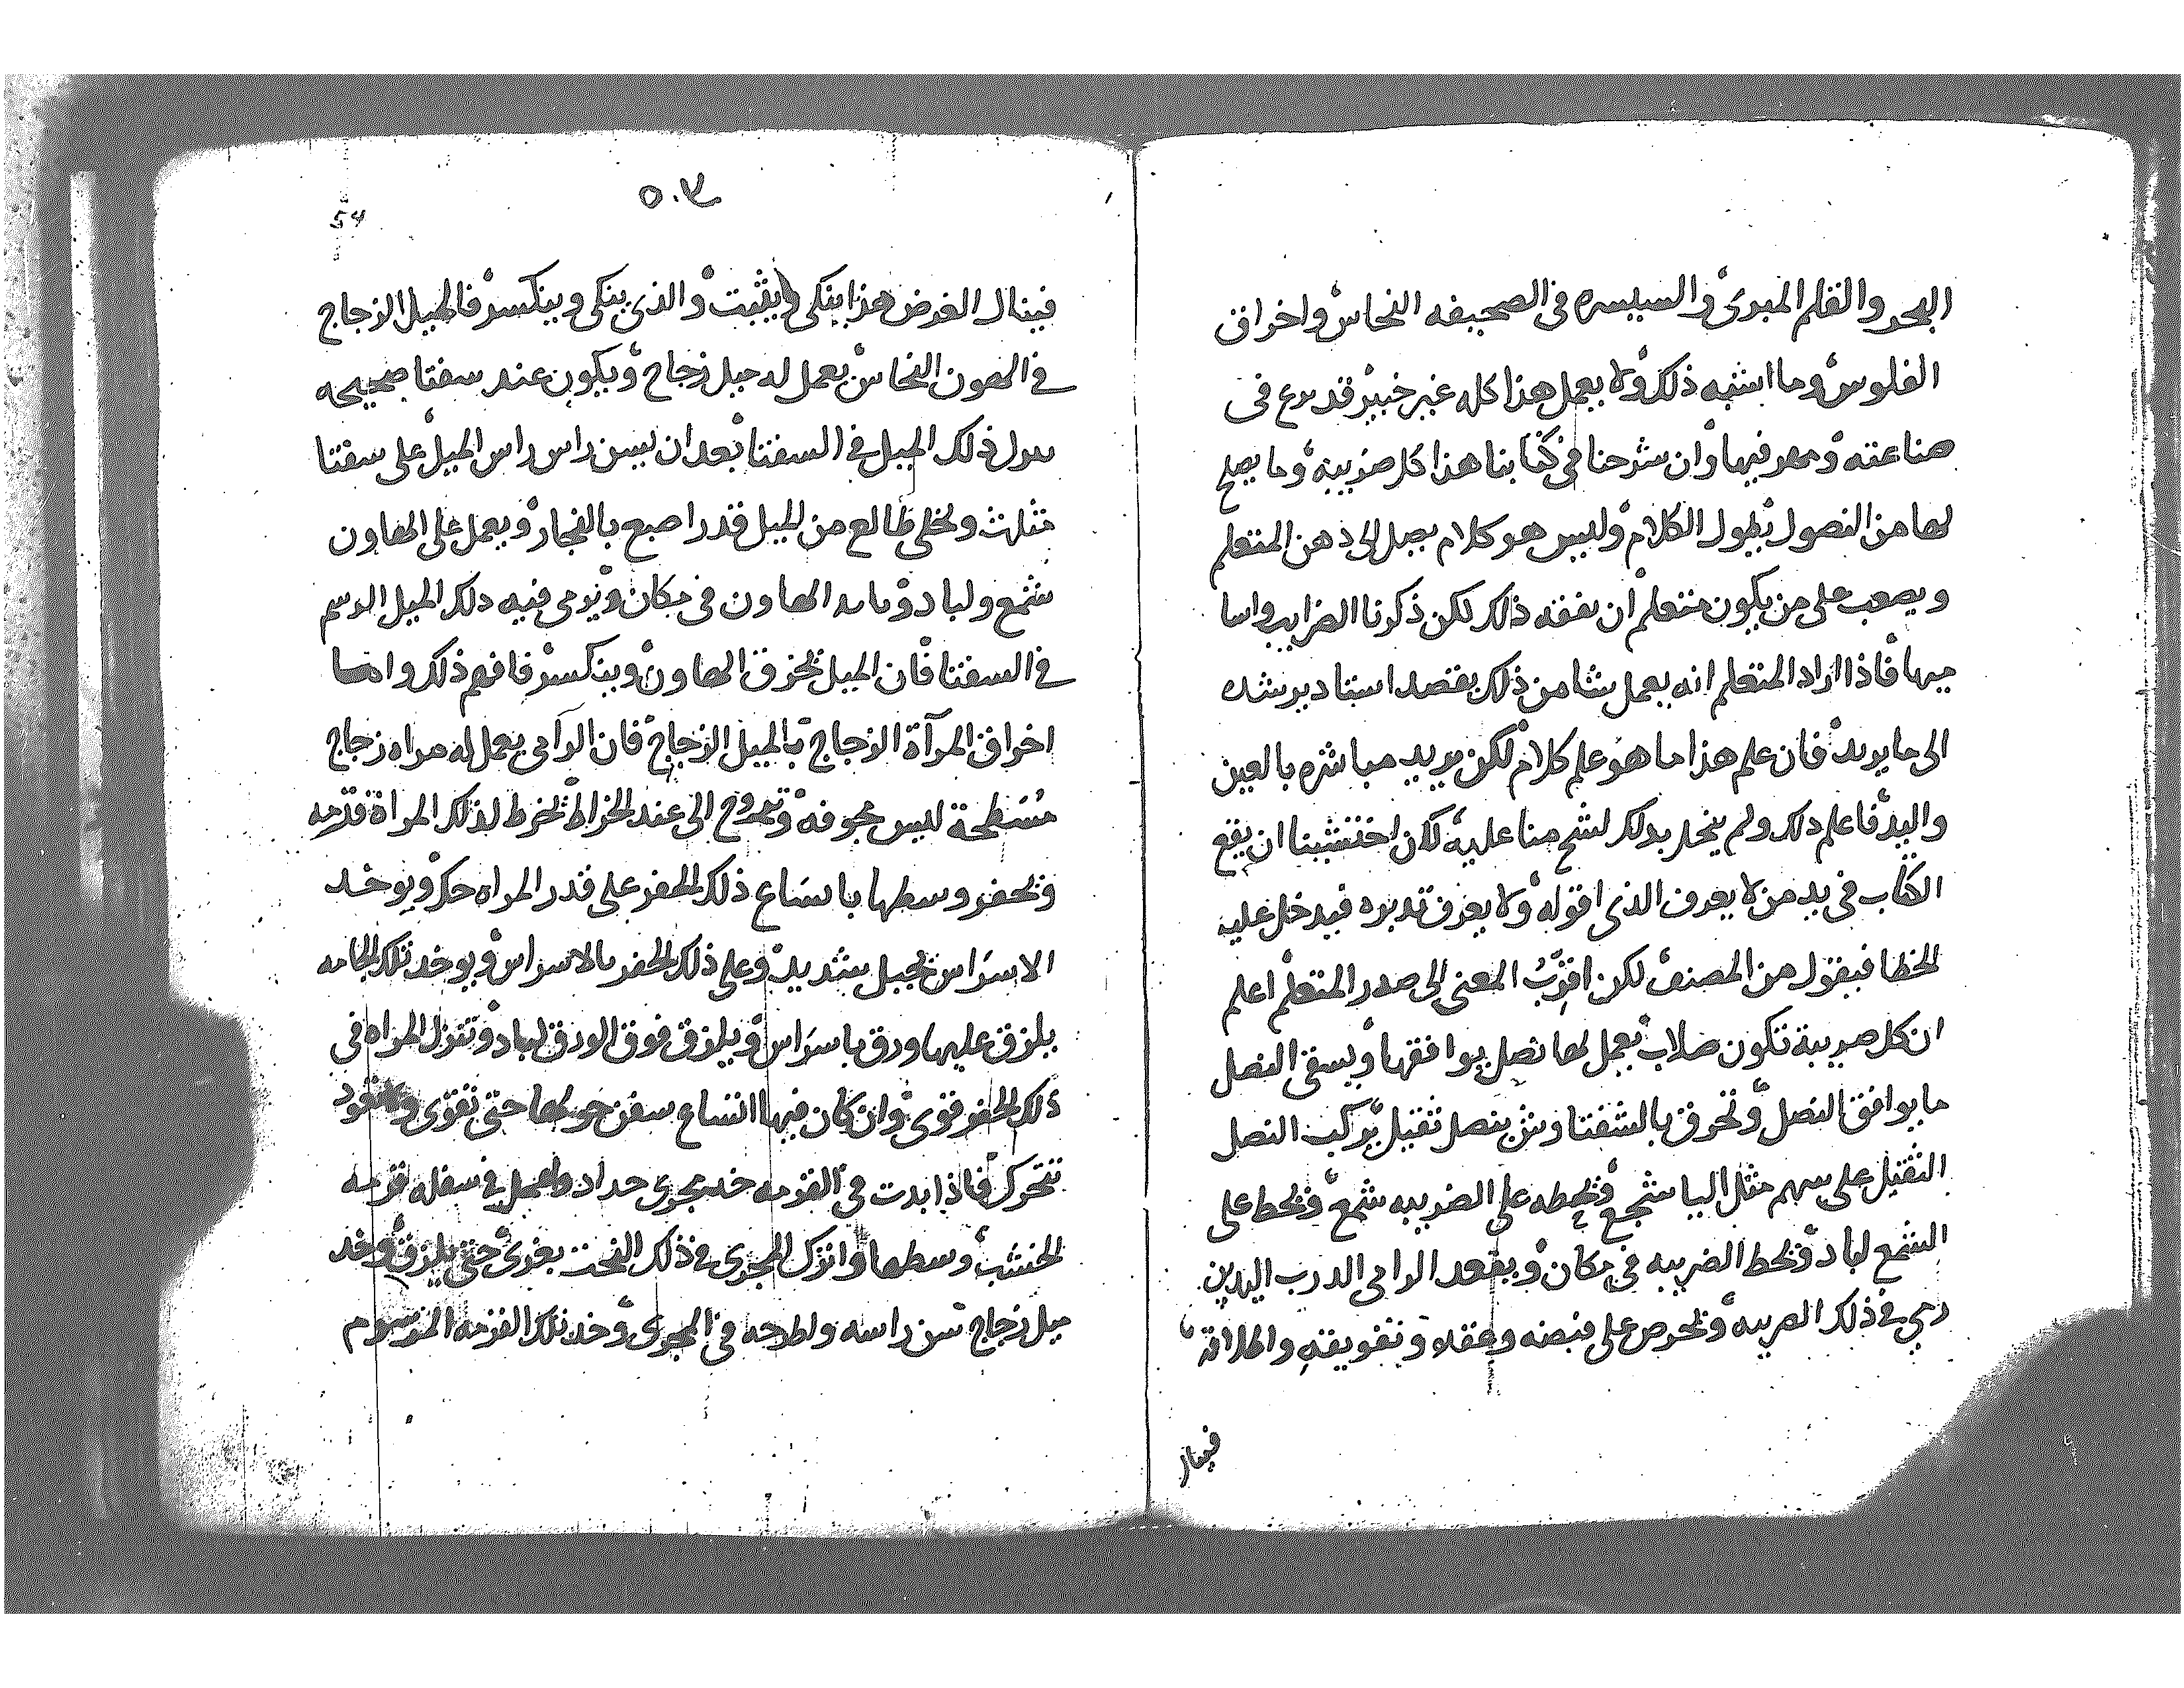 البحر والقلم المبرى والسيسره فى الصحيفه النحاس واخراق
الفلوس وما اشبه ذلك ولا يعمل هذا كله غير خبير قد برع فى
صناعته ومهر فيها وان شرحنا فى كتابنا هذا كل ضريبه وما يصلح
لها من النصول يطول الكلام وليس هو كلام يصل الى ذهن المتعلم
ويصعب على من يكون متعلم ان يفقه ذلك لكن ذكرنا الضرايب واسا
ميها فاذا اراد المتعلم انه يعمل شا من ذلك يقصد استاد يرشده
الى ما يريد فان علم هذا ما هو علم كلام لكن يريد مباشره بالعين
واليد فاعلم ذلك ولم ينحل بذلك لشح منا عليه لكن اختشينا ان يقع
الكتاب فى يد من لا يعرف الذى اقوله ولا يعرف تدبيره فيدخل عليه
الخطا فيقول من المصنف لكن اقرب المعنى الى صدر المتعلم اعلم
ان كل ضريبة تكون صلاب يعمل لها نصل يوافقها ويسقى النصل
ما يوافق النصل وتحرق بالشفتا وتنز بنصل ثقيل يركب النصل
الثقيل على سهم مثل اليا شمجع وتحطه على الضريبه شمع وتحط على
الشمع لباد وتحط الضريبه فى مكان ويقعد الرامى الدرب اليدين
رمي فى ذلك الضريبه وتحرص على قبضه وعقده وتفويقه واطلاقه
فينال
٥٠٣
54
فينال الغرض هذا ينكى ويثبت والذى ينكى وينكسر فالميل الزجاج
فى الهون النحاس يعمل له ميل زجاج ويكون عند سفتا صحيحه
ذلك الميل فى السفتا بعد ان يسن راس راس الميل على سفتا
مثلث وتخلى طالع من الميل قدر اصبع بالفجار ويعمل على الهاون
شمع ولباد الهاون فى مكان ويرمى فيه ذلك الميل
فى السفتا فان الميل يخرق الهاون وينكسر فافهم ذلك واما
اخراق المرآة الزجاج بالميل الزجاج فان الرامى يعمل له مراه زجاج
مسطحة ليس مجوفه وتروح الى عند الخراط تخرط لذلك المراة قرمه
وتحفر وسطها باتساع ذلك الحفر على قدر المراه حكر ويوخد
الاسراس يجبل شديد وعلى ذلك الحفر بالاسراس ويوخد تلك الجامه
يلزق عليها ورق باسراس ويلزق فوق الورق لباد وتنزل المراه فى
ذلك الحفر قوى وان كان فيها اتساع سفن حولها حتى تقوى تعود
تتحرك فاذا بدت فى القرمه خد مجرى حداد واعمل فى سفله قرمه
الخشب وسطها وانزل المجرى فى ذلك النحت بغرى حتى يلزق وخد
ميل زجاج سن راسه واطرحه فى المجرى وخد تلك القرمه المرسوم